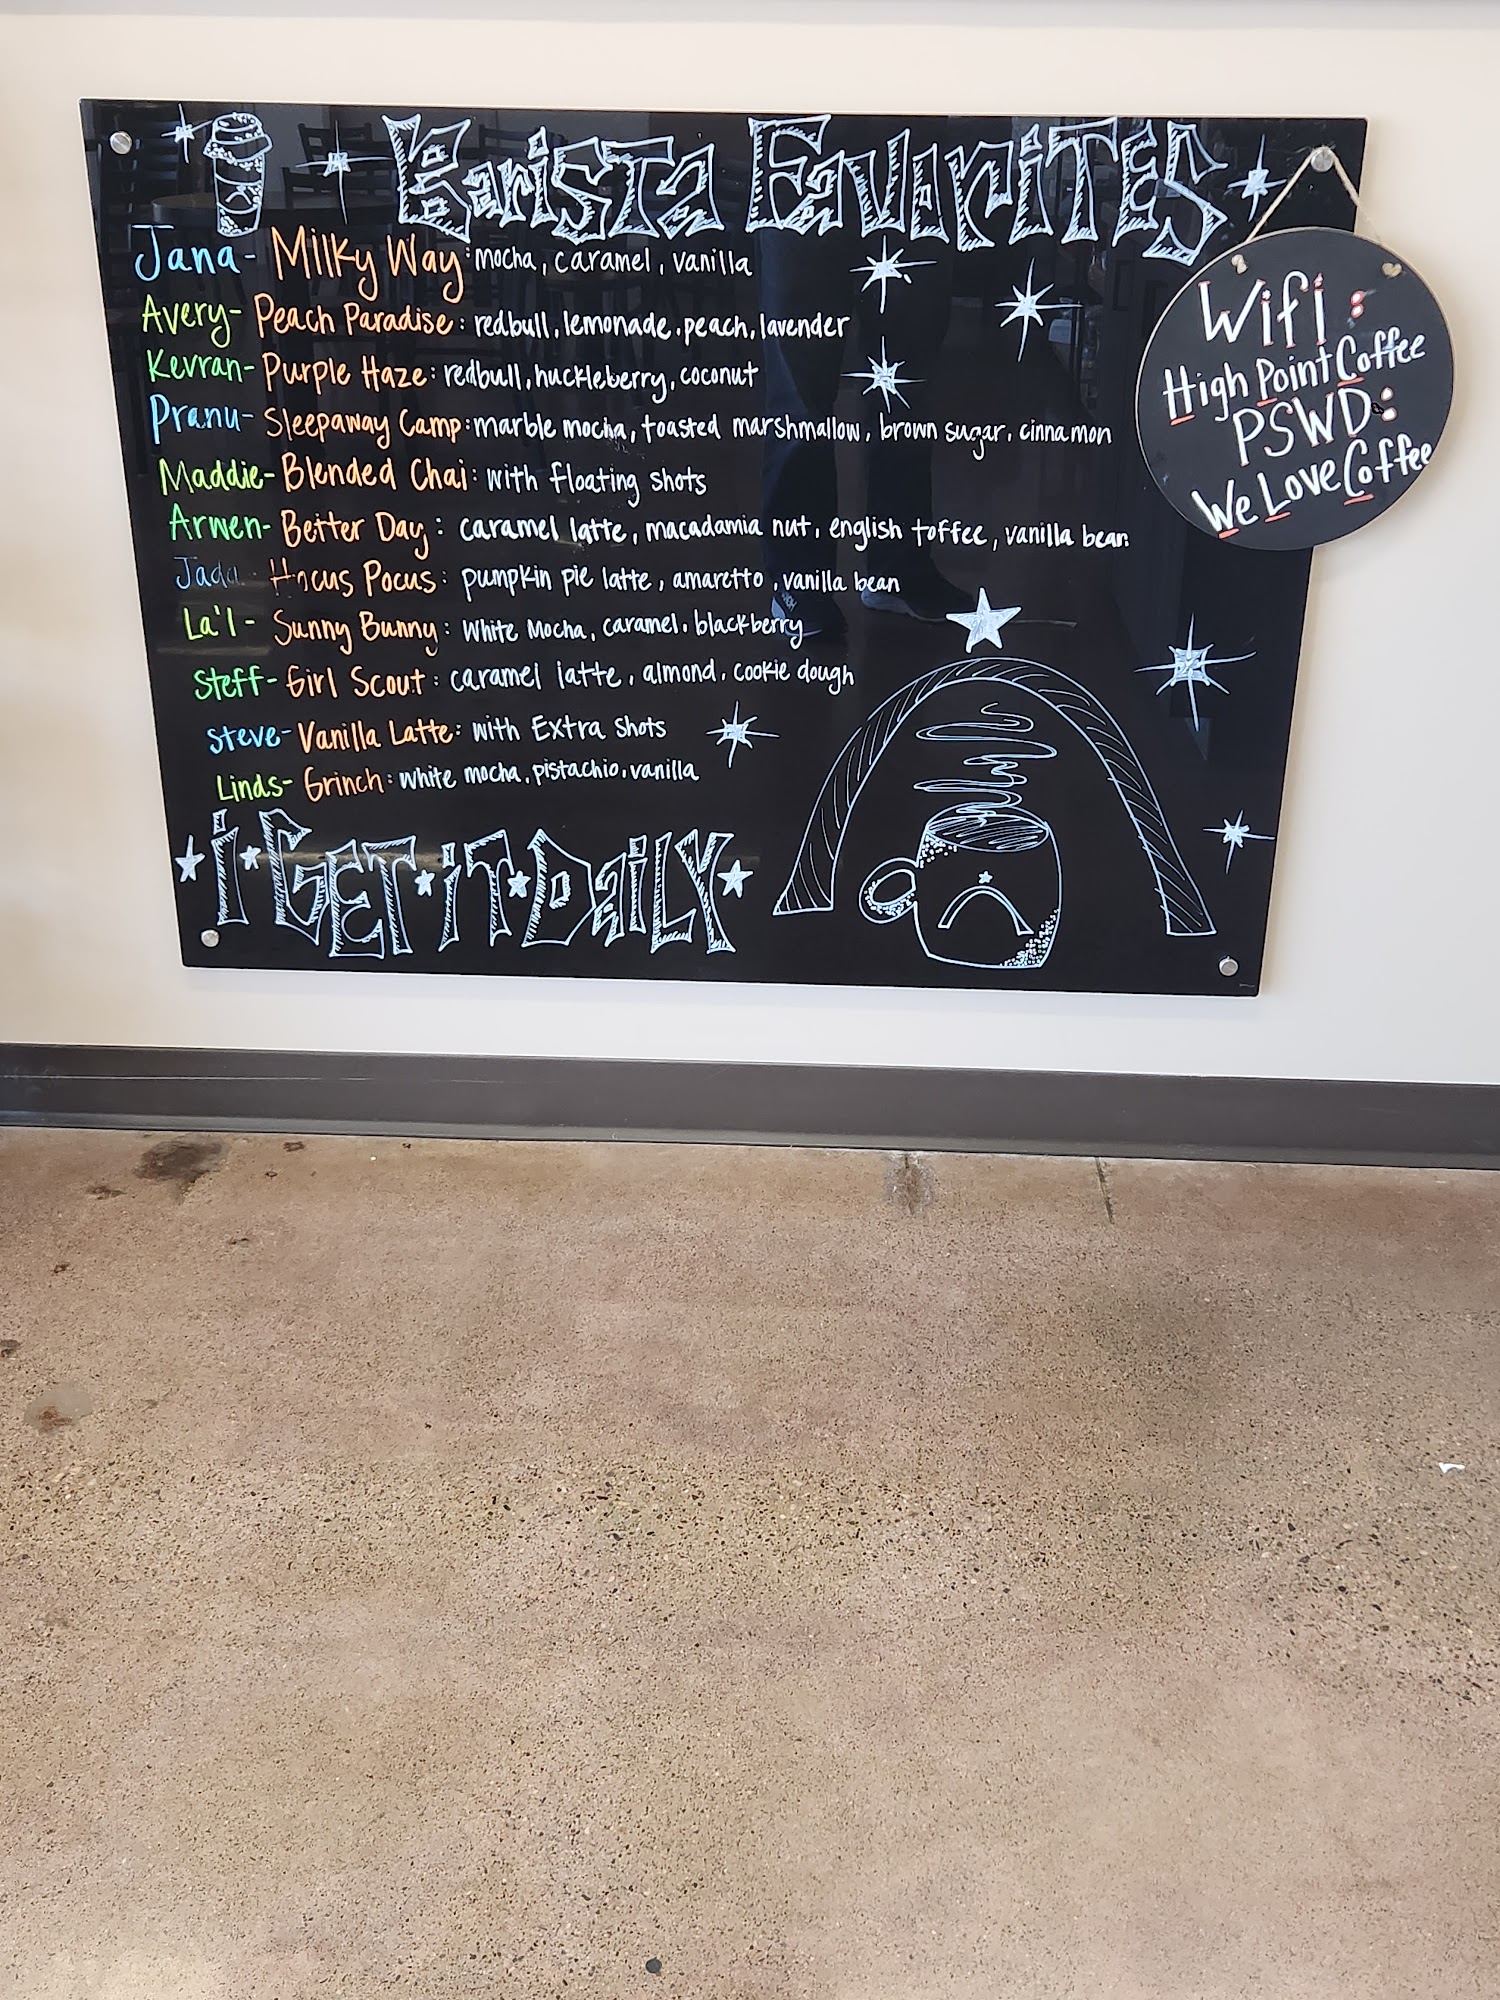 Barista Favorites
Jana- Milky Way: mocha, caramel, vanilla
Avery- Peach Paradise: redbull, lemonade, peach, lavender
Kevran- Purple Haze: redbull, huckleberry, coconut
Pranu- Sleepaway Camp: marble mocha, toasted marshmallow, brown sugar, cinnamon
Maddie- Blended Chai: with floating shots
Arwen- Better Day: caramel latte, macadamia nut, english toffee, vanilla bean
Jada- Hocus Pocus: pumpkin pie latte, amaretto, vanilla bean
La'l- Sunny Bunny: White Mocha, caramel, blackberry
Steff- Girl Scout: caramel latte, almond, cookie dough
Steve- Vanilla Latte: with Extra Shots
Linds- Grinch: white mocha, pistachio, vanilla
I Get it Daily
Wifi:
High Point Coffee
PSWD:
We Love Coffee